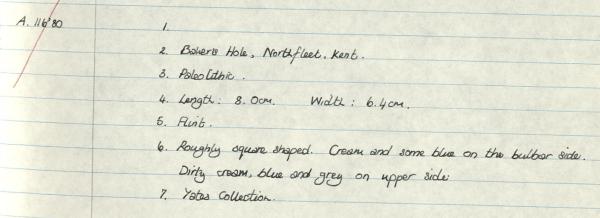 A. 116'80
1.
2. Bakers Hole, Northfleet, Kent.
3. Paleolithic.
4. Length: 8.0cm. Width: 6.4cm.
5. Flint.
6. Roughly square shaped. Cream and some blue on the bulbar side.
Dirty cream, blue and grey on upper side
7. Yates Collection.